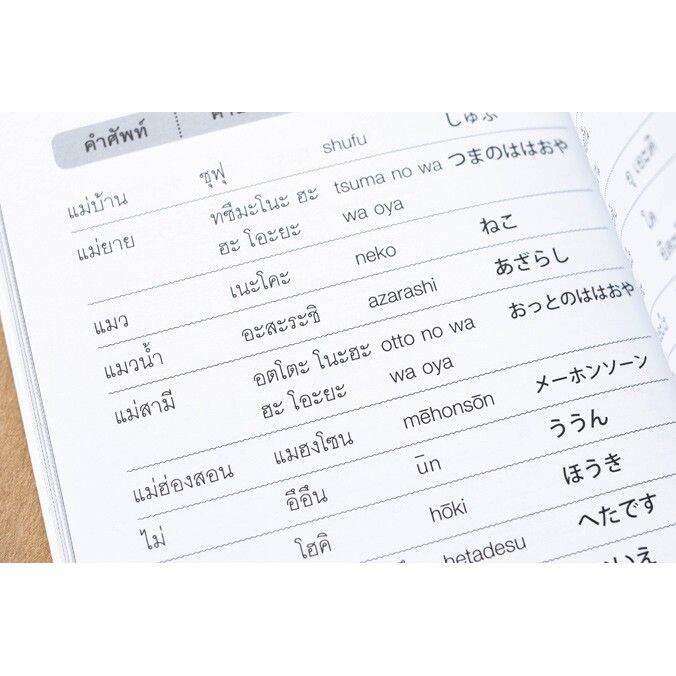 คำศัพท์
แม่บ้าน ซุฟุ shufu しゅふ
แม่ยาย ทซึมะโนะ ฮะ tsuma no wa つまのははおや
ฮะ โอะยะ wa oya
แมว เนะโคะ neko ねこ
แมวน้ำ อะสะระชิ azarashi あざらし
แม่สามี อตโตะ โนะฮะ otto no wa おっとのははおや
ฮะ โอะยะ wa oya
แม่ฮ่องสอน แมฮงโซน mēhonsōn メーホンソーン
ไม่ อึอึน ūn ううん
โฮคิ hōki ほうき
hetadesu へたです
いえ